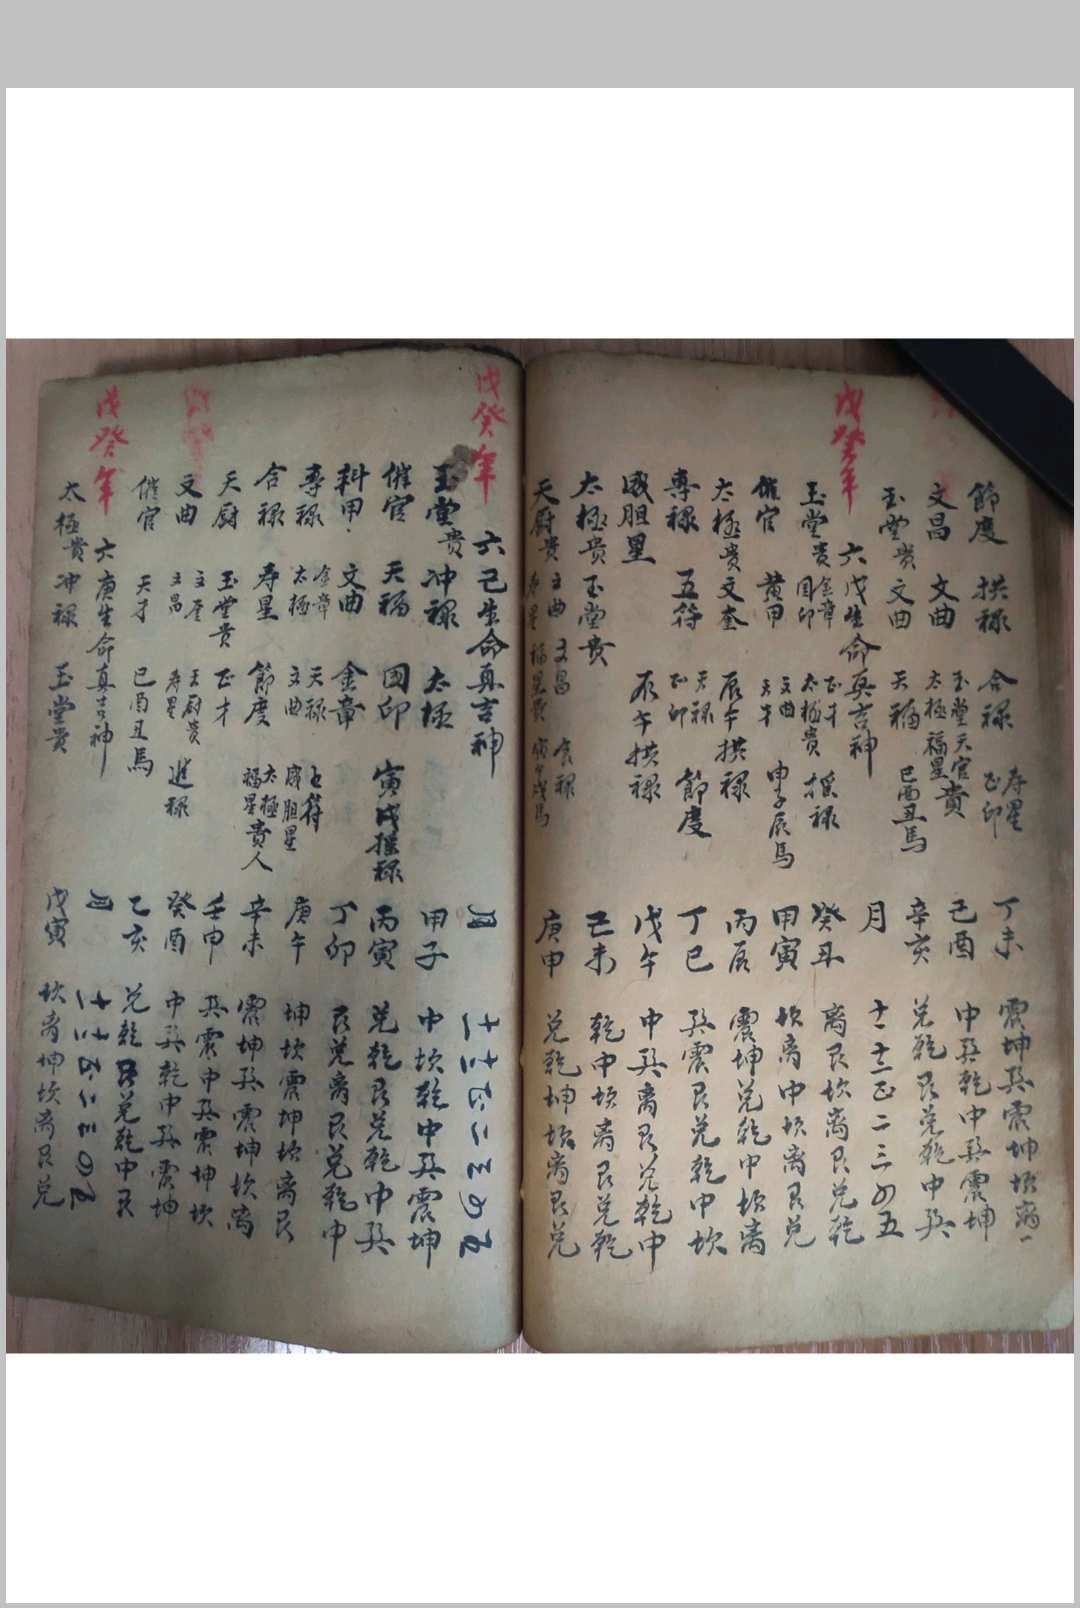 節度 拱禄 合禄 寿星 正印 丁未 震坤巽震坤坎离
文昌 文曲 玉堂天官貴 太極福星 己酉 中巽乾中巽震坤
玉堂貴 文曲 天福 巳酉丑馬 辛亥 兑乾艮兑乾中巽
戊癸年 六戊生命真吉神 月 十一十二正二三四五
玉堂貴 金章 國印 正才 太極貴 拱禄 癸丑 离艮坎离艮兑乾
催官 黄甲 文曲 天才 申子辰馬 甲寅 坎离中坎离艮兑
太極貴 文奎 辰午拱禄 丙辰 震坤兑乾中坎离
專禄 五符 天禄 正印 節度 丁巳 巽震艮兑乾中坎
威胆星 辰午拱禄 戊午 中巽离艮兑乾中
太極貴 玉堂貴 己未 乾中坎离艮兑乾
天厨貴 文曲 寿星 文昌 福星貴 寅午戌馬 庚申 兑乾坤坎离艮兑
戊癸年 六己生命真吉神 月 十一十二正二三四五
玉堂貴 冲禄 太極 甲子 中坎乾中巽震坤
催官 天福 國印 寅戌拱禄 丙寅 兑乾艮兑乾中巽
科甲 文曲 金章 丁卯 艮兑离艮兑乾中
專禄 金章 太極 天禄 文曲 七符 威胆星 庚午 坤坎震坤坎离艮
合禄 寿星 節度 太極 福星貴人 辛未 震坤巽震坤坎离
天厨 玉堂貴 正才 壬申 巽震中巽震坤坎
文曲 文奎 文昌 天厨貴 寿星 進禄 癸酉 中巽乾中巽震坤
催官 天才 巳酉丑馬 乙亥 兑乾艮兑乾中艮
戊癸年 六庚生命真吉神 月 十一十二正二三四五
太極貴 冲禄 玉堂貴 戊寅 坎离坤坎离艮兑